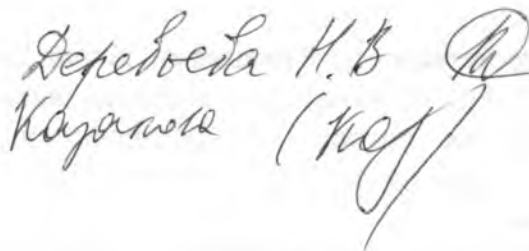 Деревоева Н.В
Казакова (Каз)